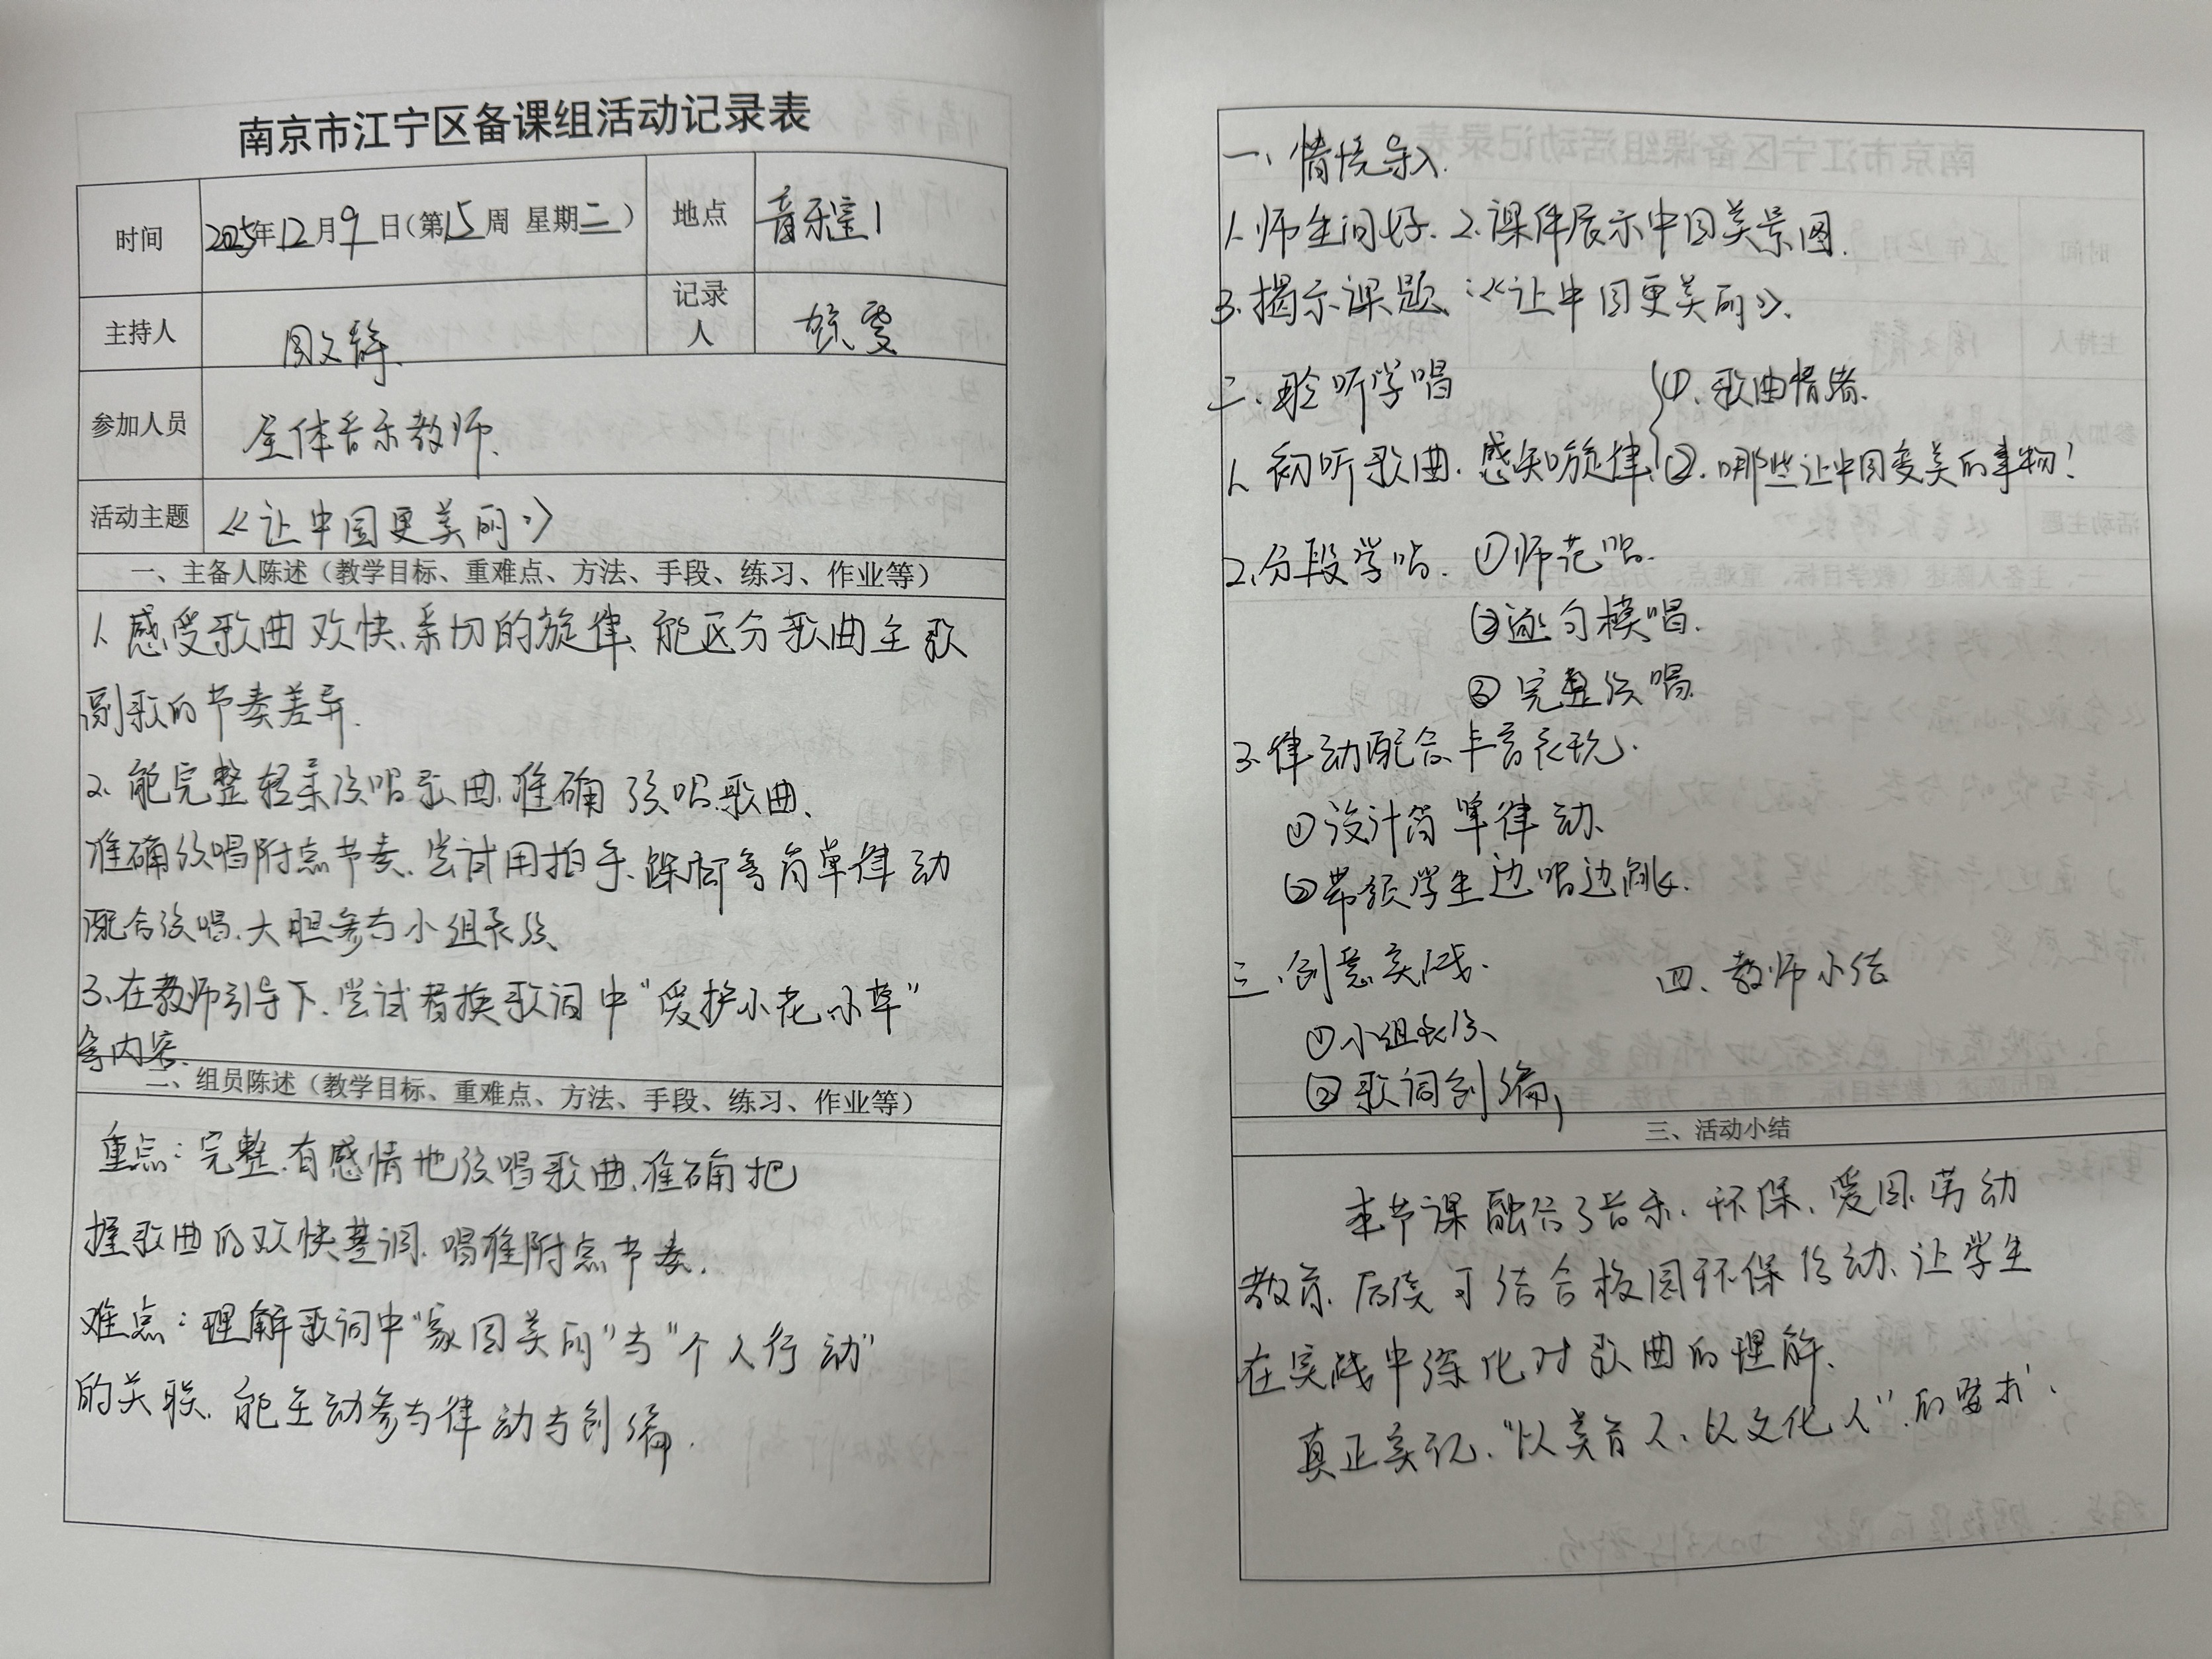 南京市江宁区备课组活动记录表
时间 2025年12月9日(第15周 星期二) 地点 音乐室1
主持人 周文静 记录人
参加人员 全体音乐教师
活动主题 《让中国更美丽》
一、主备人陈述（教学目标、重难点、方法、手段、练习、作业等）
1.感受歌曲欢快、亲切的旋律、能区分歌曲主歌
副歌的节奏差异.
2.能完整轻柔演唱歌曲、准确演唱歌曲、
准确演唱附点节奏、尝试用拍手、跺脚等简单律动
配合演唱、大胆参与小组表演、
3.在教师引导下、尝试替换歌词中“爱护小花小草”
等内容.
二、组员陈述（教学目标、重难点、方法、手段、练习、作业等）
重点：完整、有感情地演唱歌曲、准确把
握歌曲的欢快基调、唱准附点节奏.
难点：理解歌词中“家园美丽”与“个人行动”
的关联、能主动参与律动与创编.
一、情境导入.
1.师生问好、2.课件展示中国美景图.
3.揭示课题：《让中国更美丽》.
二、聆听学唱
1.初听歌曲、感知旋律 ①、歌曲情绪.
②、哪些让中国变美的事物?
2.分段学唱、①师范唱.
②逐句模唱.
③完整演唱.
3.律动配合丰富表现.
①设计简单律动、
②带领学生边唱边跳.
三、创意实践.
①小组表演、
②歌词创编,
四、教师小结
三、活动小结
本节课融合了音乐、环保、爱国、劳动
教育、后续可结合校园环保活动、让学生
在实践中深化对歌曲的理解、
真正实现、“以美育人、以文化人”的要求.